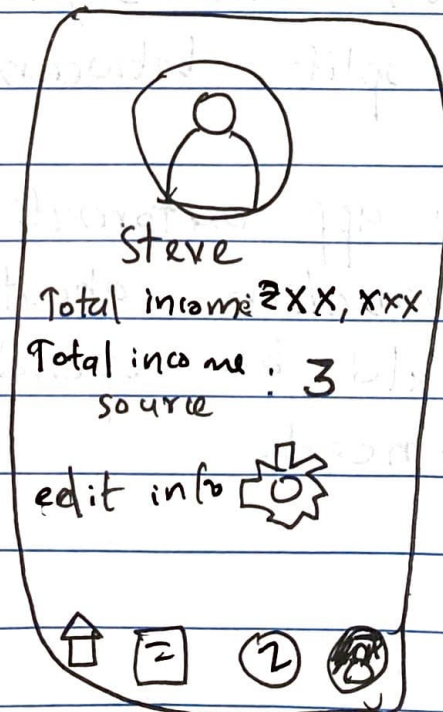 Steve
Total income: ₹XX, XXX
Total income : 3
source
edit info